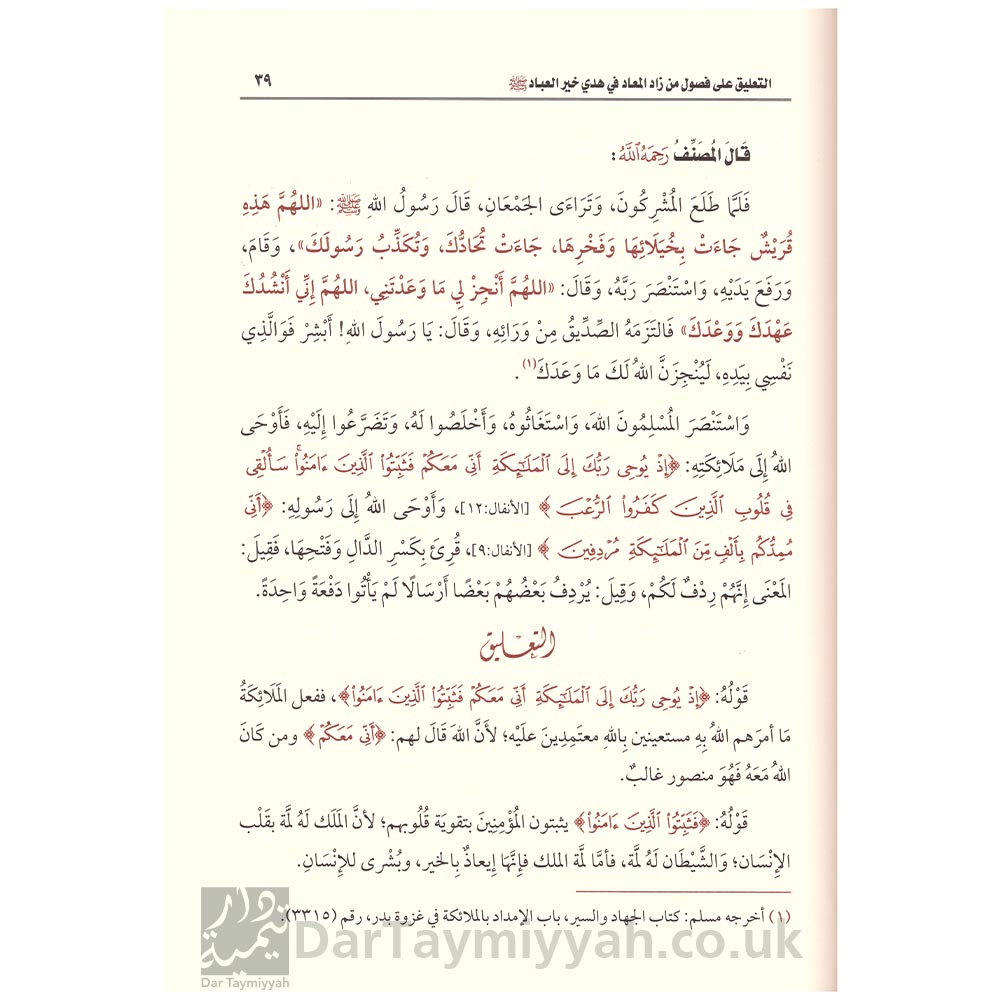 التعليق على فصول من زاد المعاد في هدي خير العباد ﷺ
٣٩
قَالَ المُصَنِّفُ رَحِمَهُ ٱللَّهُ:
فَلَمَّا طَلَعَ المُشْرِكُونَ، وَتَرَاءَى الجَمْعَانِ، قَالَ رَسُولُ اللهِ ﷺ: «اللهُمَّ هَذِهِ
قُرَيْشٌ جَاءَتْ بِخُيَلَائِهَا وَفَخْرِهَا، جَاءَتْ تُحَادُّكَ، وَتُكَذِّبُ رَسُولَكَ»، وَقَامَ،
وَرَفَعَ يَدَيْهِ، وَاسْتَنْصَرَ رَبَّهُ، وَقَالَ: «اللهُمَّ أَنْجِزْ لِي مَا وَعَدْتَنِي، اللهُمَّ إِنِّي أَنْشُدُكَ
عَهْدَكَ وَوَعْدَكَ» فَالتَزَمَهُ الصِّدِّيقُ مِنْ وَرَائِهِ، وَقَالَ: يَا رَسُولَ اللهِ! أَبْشِرْ فَوَالَّذِي
نَفْسِي بِيَدِهِ، لَيُنْجِزَنَّ اللهُ لَكَ مَا وَعَدَكَ(١).
وَاسْتَنْصَرَ المُسْلِمُونَ اللهَ، وَاسْتَغَاثُوهُ، وَأَخْلَصُوا لَهُ، وَتَضَرَّعُوا إِلَيْهِ، فَأَوْحَى
اللهُ إِلَى مَلَائِكَتِهِ: ﴿إِذۡ يُوحِي رَبُّكَ إِلَى ٱلۡمَلَٰٓئِكَةِ أَنِّي مَعَكُمۡ فَثَبِّتُواْ ٱلَّذِينَ ءَامَنُواْۚ سَأُلۡقِي
فِي قُلُوبِ ٱلَّذِينَ كَفَرُواْ ٱلرُّعۡبَ﴾ [الأنفال:١٢]، وَأَوْحَى اللهُ إِلَى رَسُولِهِ: ﴿أَنِّي
مُمِدُّكُم بِأَلۡفٖ مِّنَ ٱلۡمَلَٰٓئِكَةِ مُرۡدِفِينَ﴾ [الأنفال:٩]، قُرِئَ بِكَسْرِ الدَّالِ وَفَتْحِهَا، فَقِيلَ:
المَعْنَى إِنَّهُمْ رِدْفٌ لَكُمْ، وَقِيلَ: يُرْدِفُ بَعْضُهُمْ بَعْضًا أَرْسَالًا لَمْ يَأْتُوا دَفْعَةً وَاحِدَةً.
التعليق
قَوْلُهُ: ﴿إِذۡ يُوحِي رَبُّكَ إِلَى ٱلۡمَلَٰٓئِكَةِ أَنِّي مَعَكُمۡ فَثَبِّتُواْ ٱلَّذِينَ ءَامَنُواْ﴾، ففعل المَلَائِكَةُ
مَا أمرَهم اللهُ بِهِ مستعينين بِاللهِ معتمِدِينَ عَلَيْه؛ لأَنَّ اللهَ قَالَ لهم: ﴿أَنِّي مَعَكُمۡ﴾ ومن كَانَ
اللهُ مَعَهُ فَهُوَ منصور غالبٌ.
قَوْلُهُ: ﴿فَثَبِّتُواْ ٱلَّذِينَ ءَامَنُواْ﴾ يثبتون المُؤْمِنِينَ بتقويَة قُلُوبهم؛ لأنَّ المَلَك لَهُ لمَّة بقَلْب
الإنْسَان؛ وَالشَّيْطَان لَهُ لمَّة، فأمَّا لمَّة الملك فإنَّهَا إيعاذٌ بِالخير، وبُشْرى للإنْسَانِ.
(١) أخرجه مسلم: كتاب الجهاد والسير، باب الإمداد بالملائكة في غزوة بدر، رقم (٣٣١٥).
دار تيمية
Dar Taymiyyah
DarTaymiyyah.co.uk